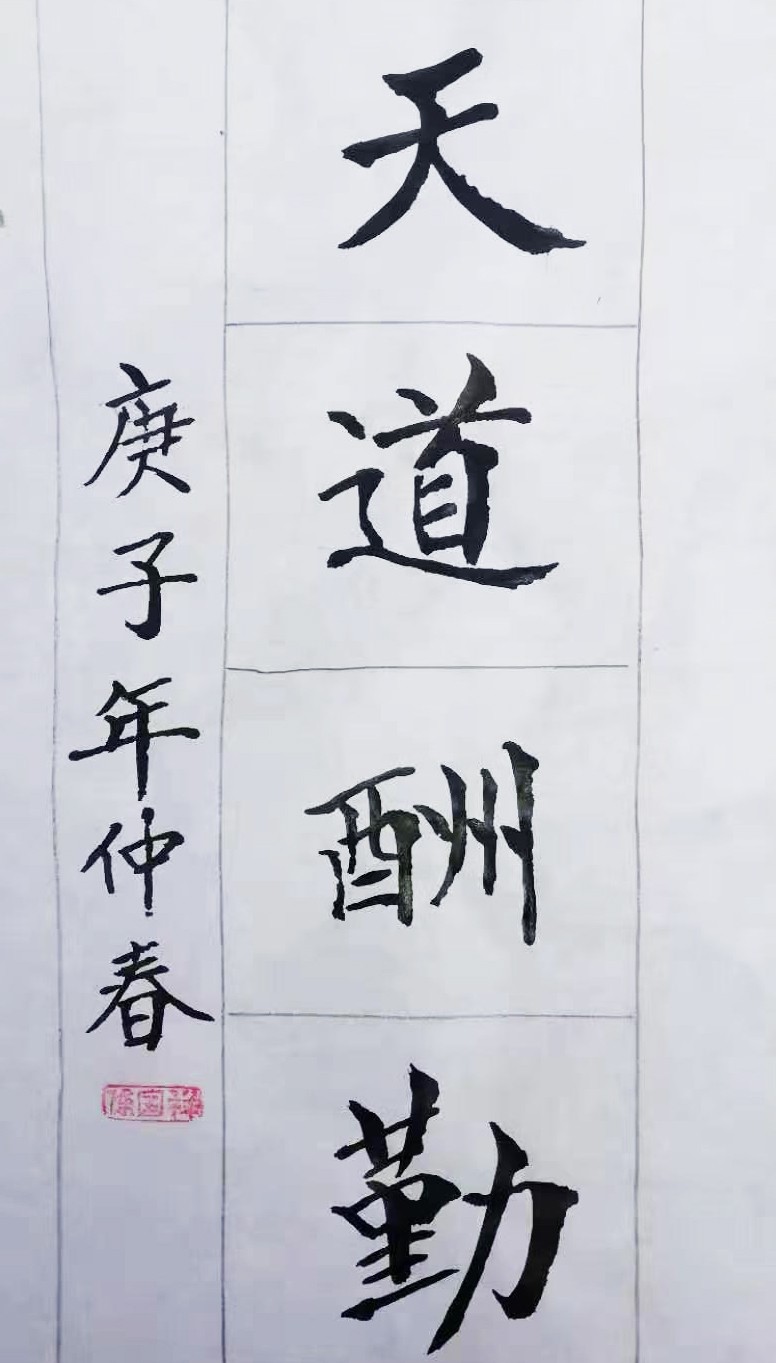 天道酬勤
庚子年仲春